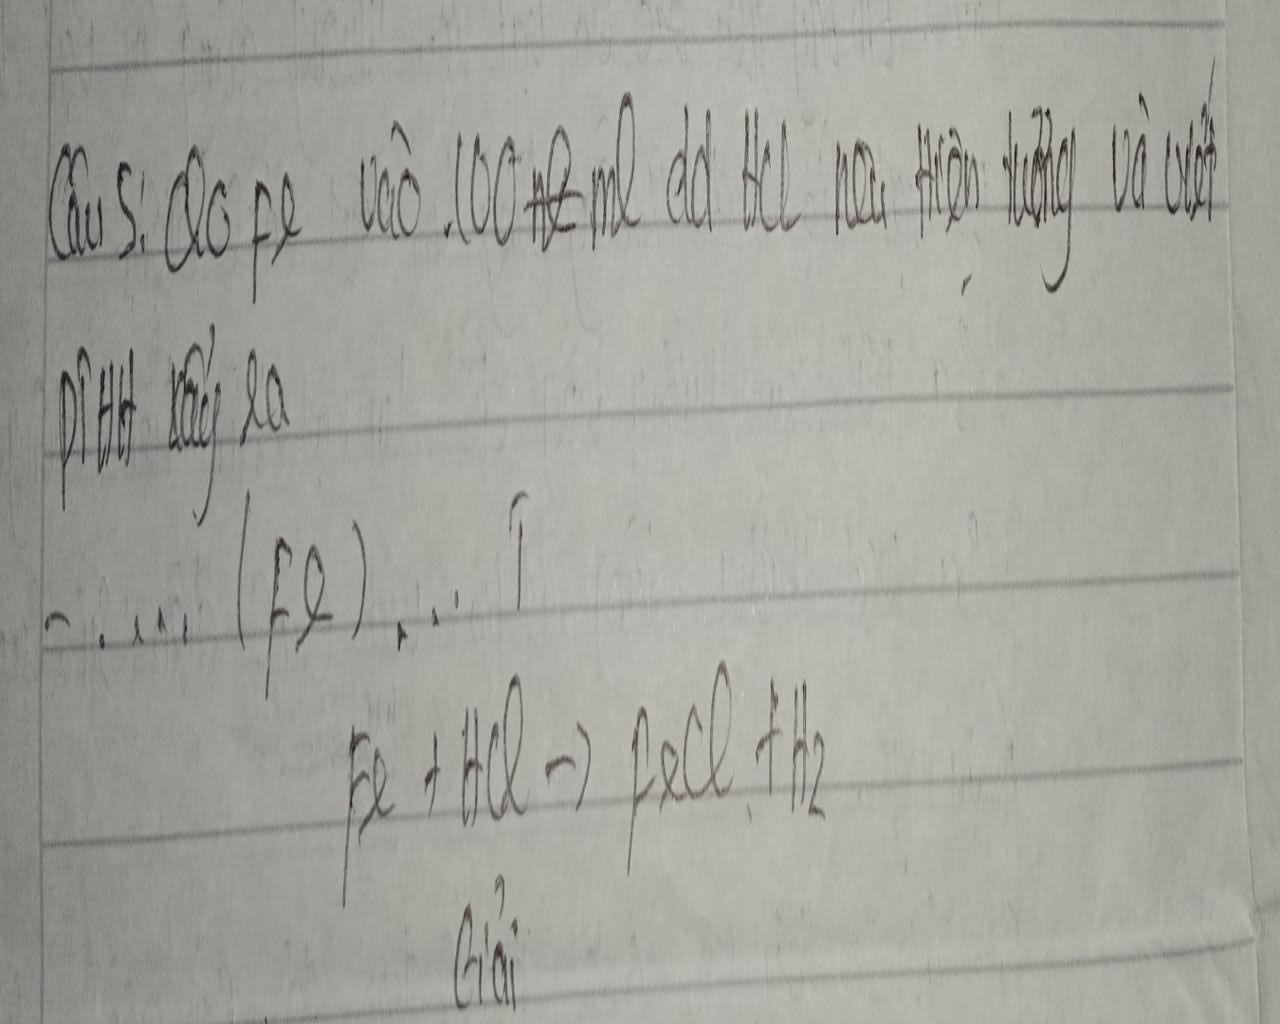 Câu 5: Cho Fe vào 100 ml dd HCl nêu hiện tượng và viết
PTHH xảy ra
- ..... (Fe) ... ↑
Fe + HCl → FeCl + H2
Giải